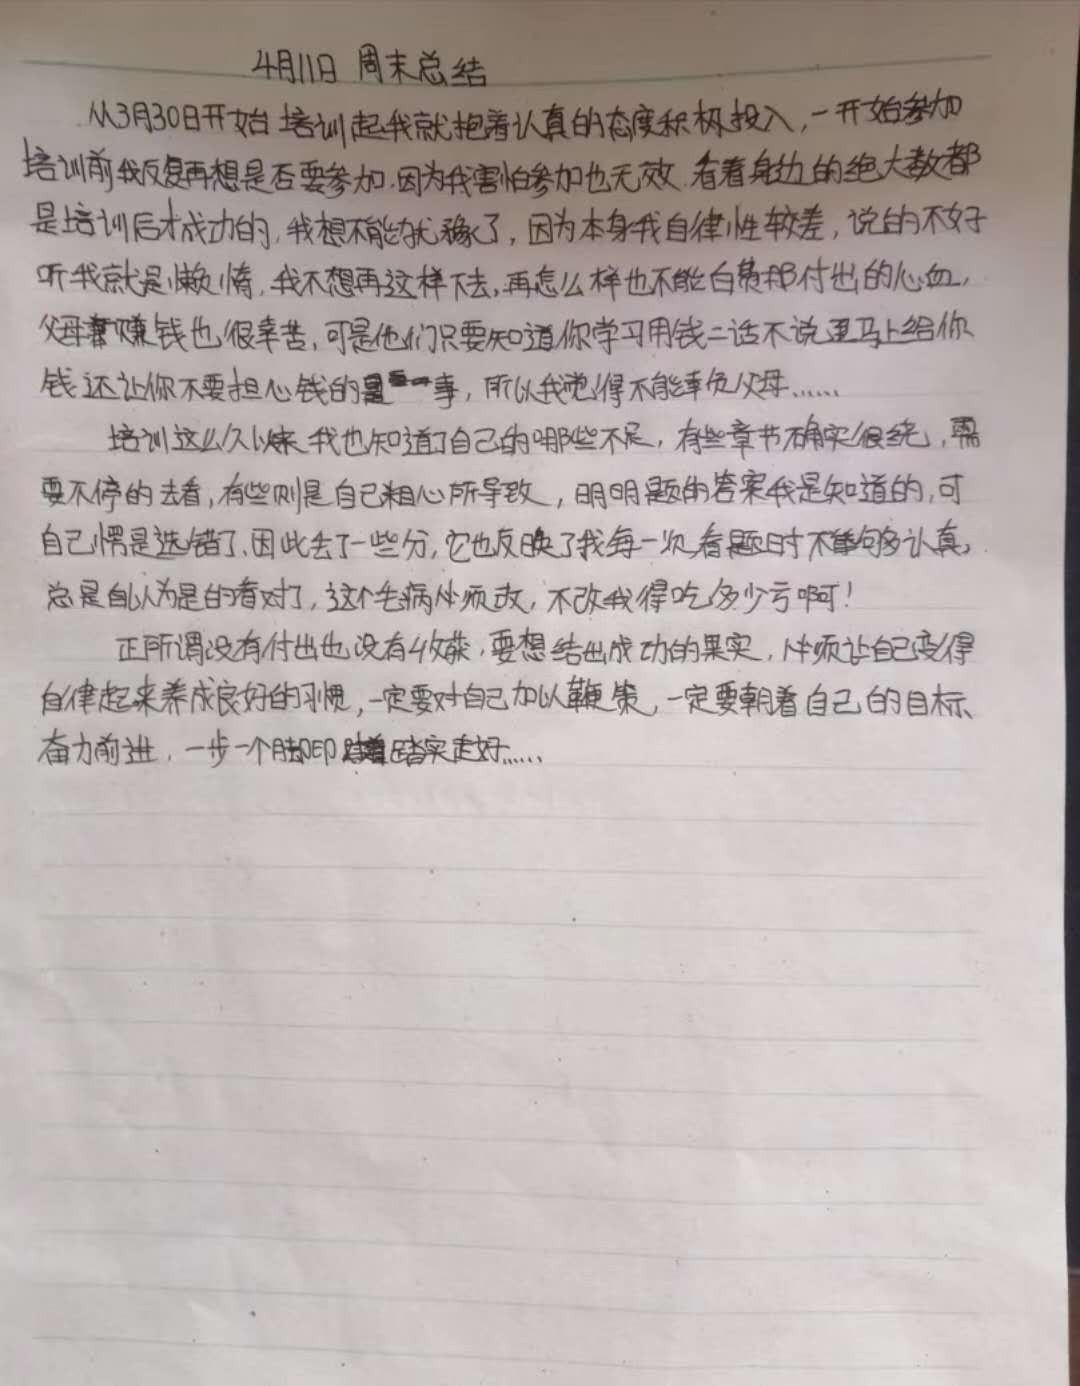 4月11日 周末总结
从3月30日开始培训起我就抱着认真的态度积极投入,一开始参加
培训前我反复再想是否要参加.因为我害怕参加也无效.看着身边的绝大数都
是培训后才成功的,我想不能犹豫了,因为本身我自律性较差,说的不好
听我就是懒惰,我不想再这样下去,再怎么样也不能白费那付出的心血,
父母赚钱也很幸苦,可是他们只要知道你学习用钱二话不说马上给你
钱还让你不要担心钱的事,所以我觉得不能辜负父母……
培训这么久以来我也知道了自己的哪些不足,有些章节确实很绕,需
要不停的去看,有些则是自己粗心所导致,明明题的答案我是知道的,可
自己愣是选错了.因此丢了一些分,它也反映了我每一次看题时不能够认真,
总是自认为是的看对了,这个毛病必须改,不改我得吃多少亏啊!
正所谓没有付出也没有收获,要想结出成功的果实,必须让自己变得
自律起来养成良好的习惯,一定要对自己加以鞭策,一定要朝着自己的目标、
奋力前进,一步一个脚印踏实走好……